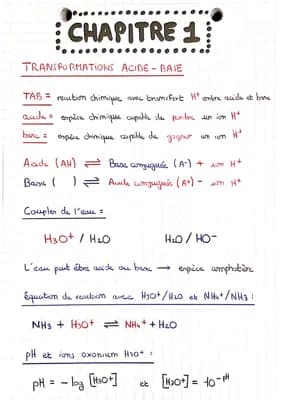 CHAPITRE 1
TRANSFORMATIONS ACIDE - BASE
TAB = réaction chimique avec transfert H⁺ entre acide et base
acide = espèce chimique capable de perdre un ion H⁺
base = espèce chimique capable de gagner un ion H⁺
Acide (AH) ⇌ Base conjuguée (A-) + ion H⁺
Base ( ) ⇌ Acide conjugué (A+) - ion H⁺
Couples de l'eau =
H3O+ / H2O H2O / HO-
L'eau peut être acide ou base → espèce amphotère
Équation de réaction avec H3O+/H2O et NH4+/NH3 :
NH3 + H3O+ ⇌ NH4+ + H2O
pH et ions oxonium H3O+ :
pH = - log [H3O+] et [H3O+] = 10-pH